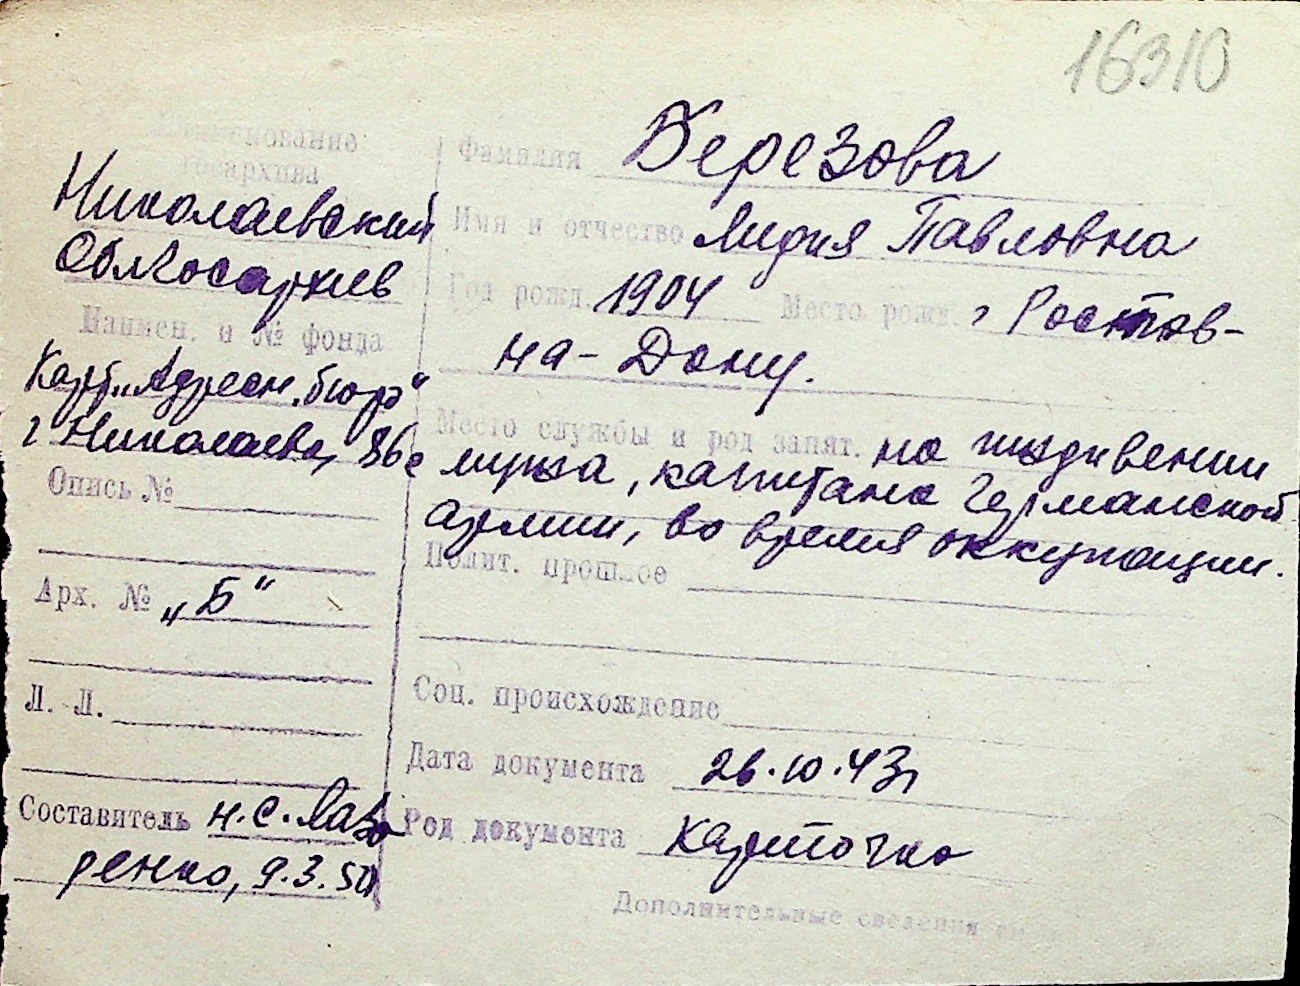 16310
Наименование
госархива
Николаевский
Облгосархив
Наимен. и № фонда
Карт. „Адресн. бюро"
г Николаева,
Опись №
Арх. № „Б"
Л. Л.
Составитель Н. С. Лазо
ренко, 9.3.50
Фамилия Березова
Имя и отчество Лидия Павловна
Год рожд. 1904 Место рожд. г Ростов-
на-Дону.
Место службы и род занят. на иждивении
мужа, капитана Германской
армии, во время оккупации.
Полит. прошлое
Соц. происхождение
Дата документа 26.10.43г
Род документа карточка
Дополнительные сведения